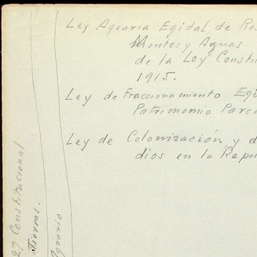 Ley Agraria Egidal de Res
Montes y Aguas
de la Ley Constit
1915.
Ley de Fraccionamiento Egi
Patrimonio Parce
Ley de Colonización y d
dios en la Repu
27 Constitucional
Tierras.
Agrario